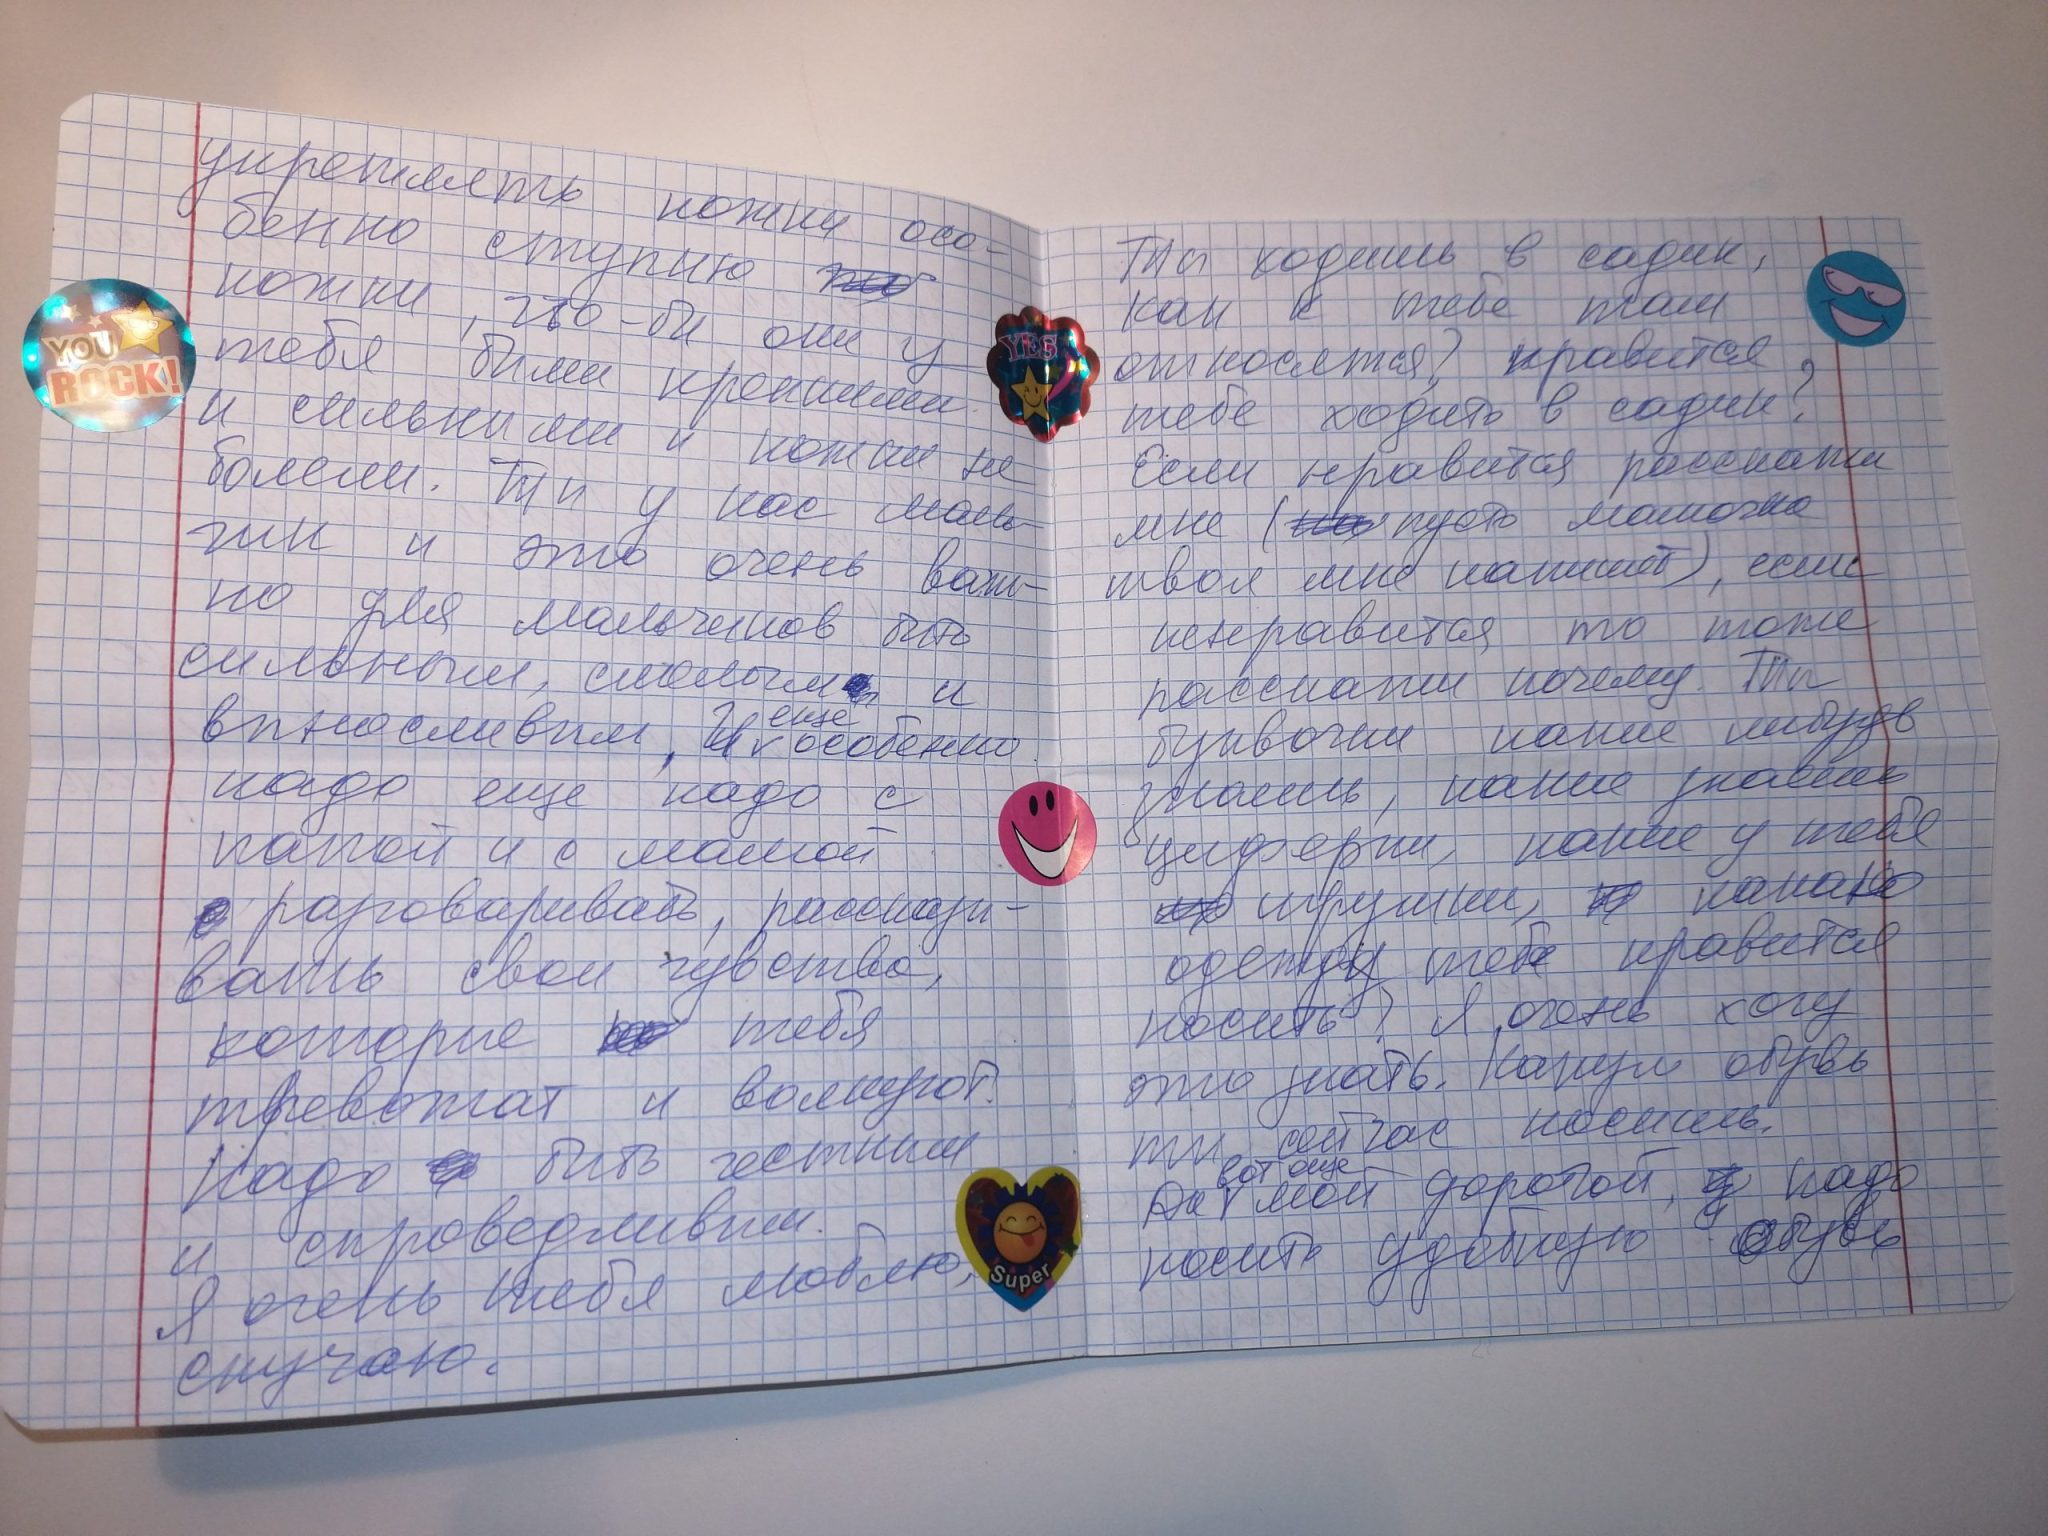 укреплять ножки осо-
бенно ступню
ножки, что-бы они у
тебя были крепкими
и сильными и ножки не
болели. Ты у нас маль-
чик и это очень важ-
но для мальчиков быть
сильным, смелым и
выносливым, И еще особенно
надо еще надо с
папой и с мамой
разговаривать, рассказы-
вать свои чувства,
которые тебя
тревожат и волнуют.
Надо быть честным
и справедливым.
Я очень тебя люблю,
скучаю.
Ты ходишь в садик,
как к тебе там
относятся? нравится
тебе ходить в садик?
Если нравится расскажи
мне (пусть мамочка
твоя мне напишет), если
ненравится то тоже
расскажи почему. Ты
буквочки какие нибудь
знаешь, какие знаешь
циферки, какие у тебя
игрушки, какаю
одежду тебе нравится
носить? Я очень хочу
это знать. Какую обувь
ты сейчас носишь.
Да вот еще мой дорогой, надо
носить удобную обувь
YOU
ROCK!
YES
Super